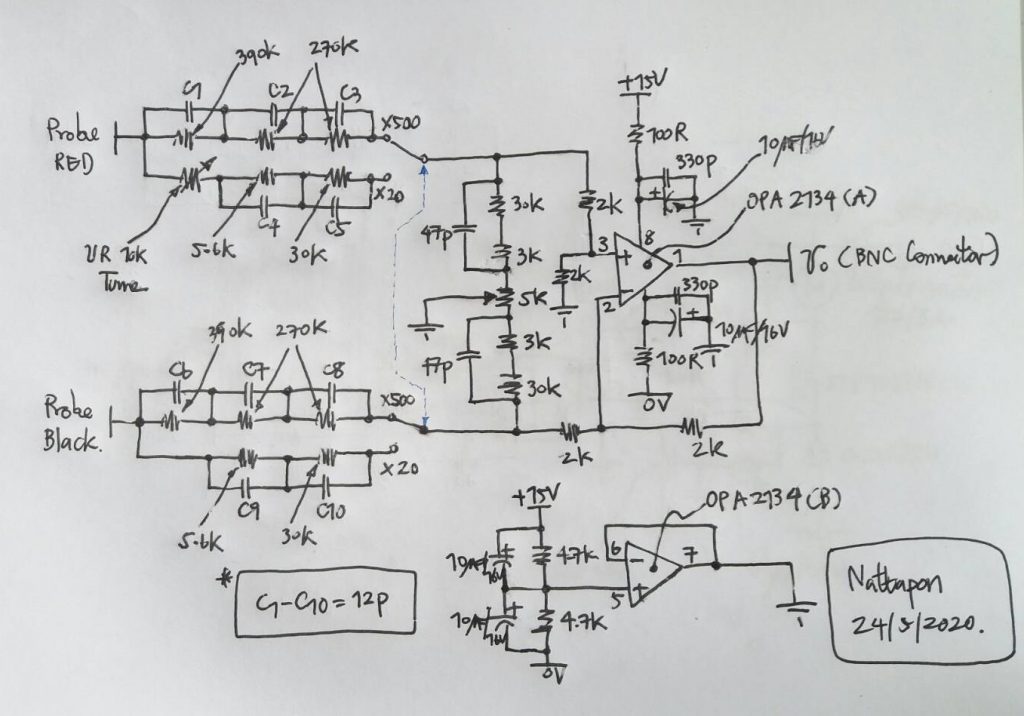 390k
270k
C1
C2
C3
x500
Probe
RED
x20
C4
C5
VR 1k
Tune
5.6k
30k
+15V
100R
330p
10µF/16V
OPA 2134 (A)
2k
3
8
1
2
2k
Vo (BNC Connector)
330p
10µF/16V
100R
0V
47p
30k
3k
5k
3k
47p
30k
390k
270k
C6
C7
C8
x500
Probe
Black.
x20
C9
C10
5.6k
30k
2k
2k
+15V
OPA 2134 (B)
10µF
16V
4.7k
6
7
5
10µF
16V
4.7k
0V
*
C1-C10 = 12p
Nattapon
24/5/2020.